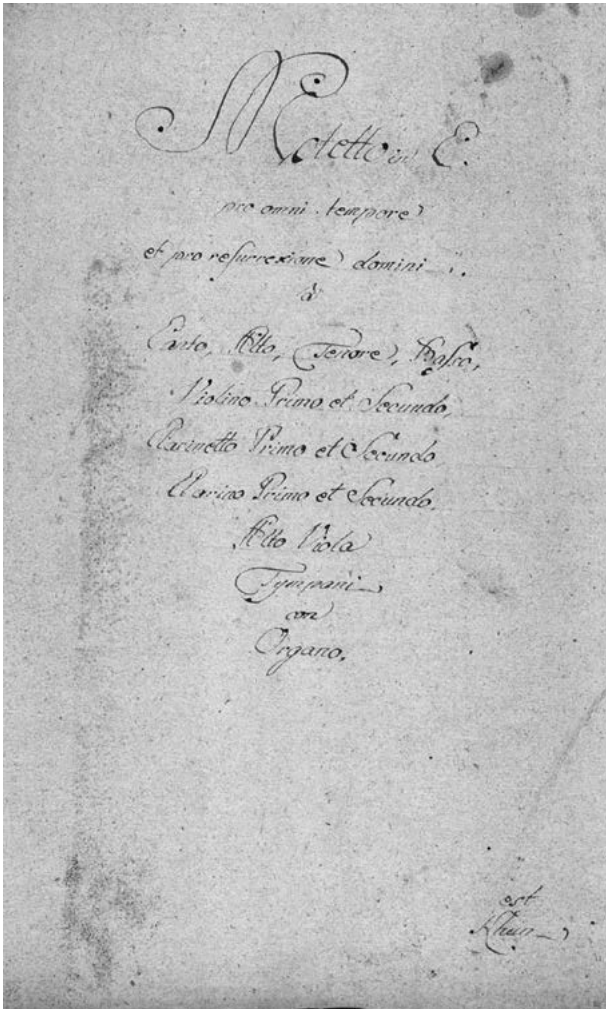 Motetto in C.
pro omni tempore
et pro resurrexione domini
à
Canto, Alto, Tenore, Basso,
Violino Primo et Secundo,
Clarinetto Primo et Secundo
Clarino Primo et Secundo.
Alto Viola
Tympani
con
Organo.
est